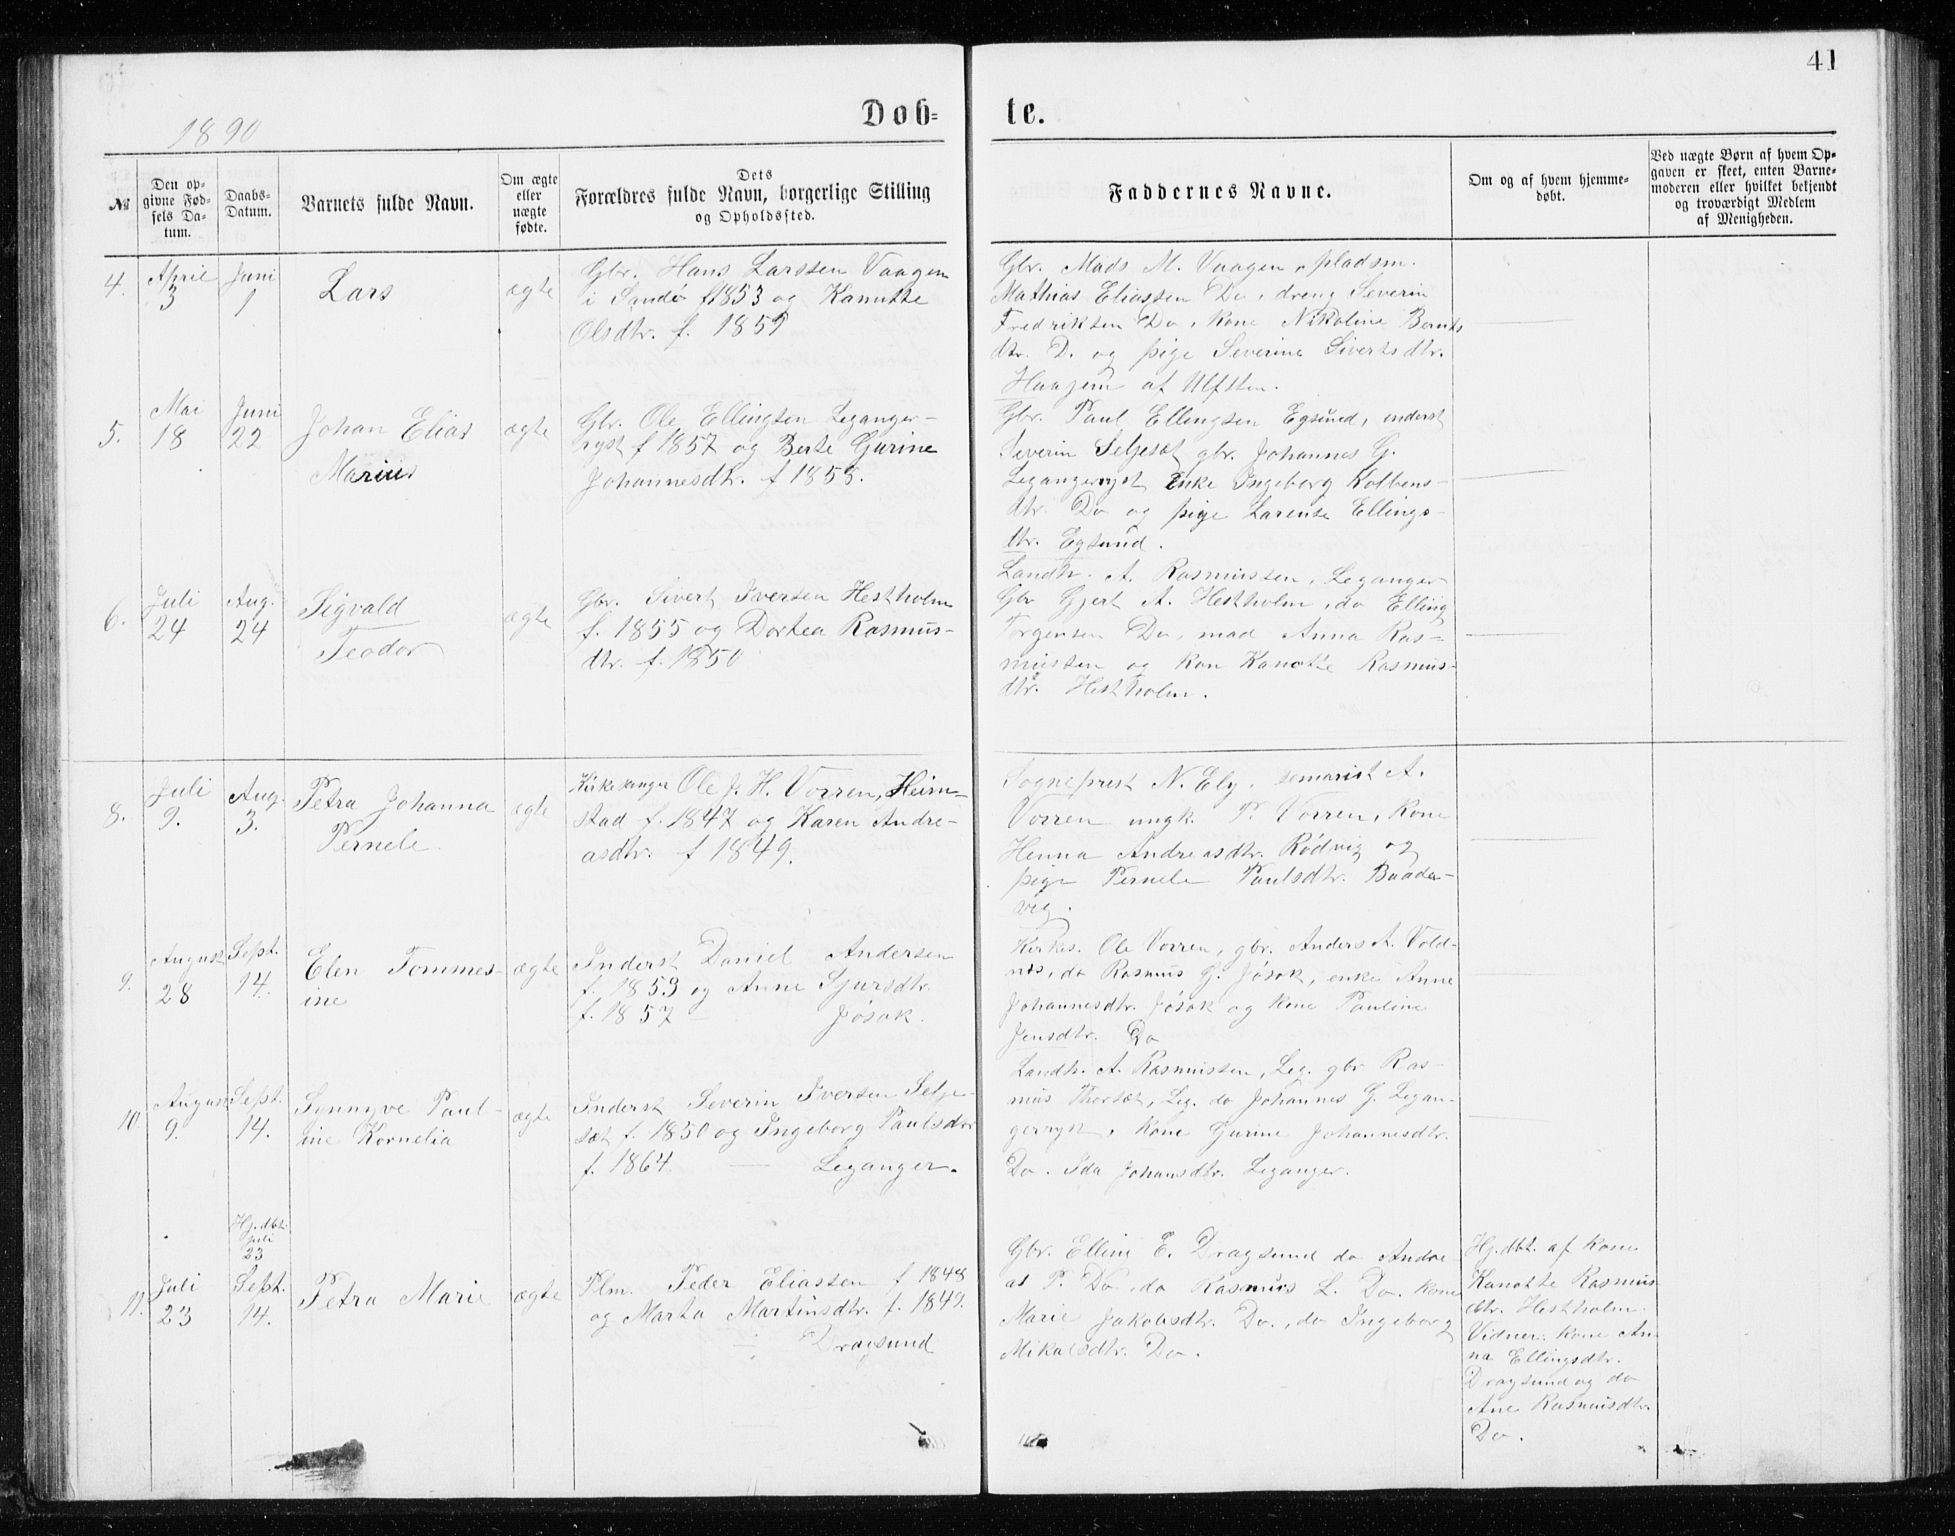 41
1890
Døb=
te.
№
Den op-
givne Fød-
sels Da-
tum.
Daabs-
Datum.
Barnets fulde Navn.
Om ægte
eller
uægte
fødte.
Dets
Forældres fulde Navn, borgerlige Stilling
og Opholdssted.
Faddernes Navne.
Om og af hvem hjemme-
døbt.
Ved uægte Børn af hvem Op-
gaven er skeet, enten Barne-
moderen eller hvilket bekjendt
og troværdigt Medlem
af Menigheden.
4.
April
3
Juni
1
Lars
ægte
Gbr. Hans Larssen Vaagen
i Sandø f 1853 og Kanutte
Olsdtr. f. 1859
Gbr. Mads M. Vaagen, pladsm.
Mathias Eliassen Do, dreng Severin
Fredriksen Do, kone Nikoline Bernts
dtr. D. og pige Severine Sivertsdtr.
Haajem af Ulfsten.
5.
Mai
18
Juni
22
Johan Elias
Marius
ægte
Gbr. Ole Ellingsen Leganger-
ryst f 1857 og Berte Gurine
Johannesdtr. f 1855.
Gbr. Paul Ellingsen Egsund, inderst
Severin Seljesæt gbr. Johannes G.
Legangerryst enke Ingeborg Kolbens-
dtr. Do og pige Larense Ellings-
dtr. Egsund.
6.
Juli
24
Aug.
24
Sigvald
Teodor
ægte
Gbr. Sivert Iversen Hestholm
f. 1855 og Dortea Rasmus-
dtr. f. 1850
Landh. A. Rasmussen, Leganger
Gbr Gjert A. Hestholm, do Elling
Jørgensen Do, mad Anna Ras-
mussen og kon Kanotte Rasmus-
dtr. Hestholm.
8.
Juli
9.
Aug.
3.
Petra Johanna
Pernele.
ægte
Kirkesanger Ole J. H. Vorren, Heim-
stad f. 1847 og Karen Andre-
asdtr. f 1849.
Sogneprest N. Ely, semarist A.
Vorren ungk. P. Vorren, kone
Henna Andreasdtr. Rødvig og
pige Pernele Paulsdtr. Baade-
vig.
9.
August
28
Sept.
14.
Elen Tommes-
ine
ægte
Inderst Daniel Andersen
f. 1859 og Anne Sjursdtr.
f. 1857 — Jøsok.
Kirkes. Ole Vorren, gbr. Anders A. Vold-
nes, do Rasmus G. Jøsok, enke Anne
Johannesdtr. Jøsok og kone Pauline
Jensdtr. Do
10.
August
9.
Sept.
14.
Synnyve Paul-
ine Kornelia
ægte
Inderst Severin Iversen Selje-
sæt f. 1850 og Ingeborg Paulsdtr
f. 1864. — Leganger.
Landh. A. Rasmussen, Leg. gbr Ras-
mus Thorsæt, Leg. do Johannes G. Legan-
gerryst, kone Gurine Johannesdtr.
Do. Ida Johansdtr. Leganger.
11.
Juli
23
Hj. dbt.
Juli
23
Sept.
14.
Petra Marie
ægte
Plm. Peder Eliassen f 1848
og Marta Martinsdtr. f. 1849.
— Dragsund
Gbr. Elling E. Dragsund do Andre
as P. Do, do Rasmus L. Do. kone
Marie Jakobsdtr. Do., do Ingeborg
Mikalsdtr. Do.
Hj. dbt. af kone
Kanotte Rasmus
dtr. Hestholm.
Vidner: kone An-
na Ellingsdtr.
Dragsund og do
Ane Rasmusdtr.
Do.